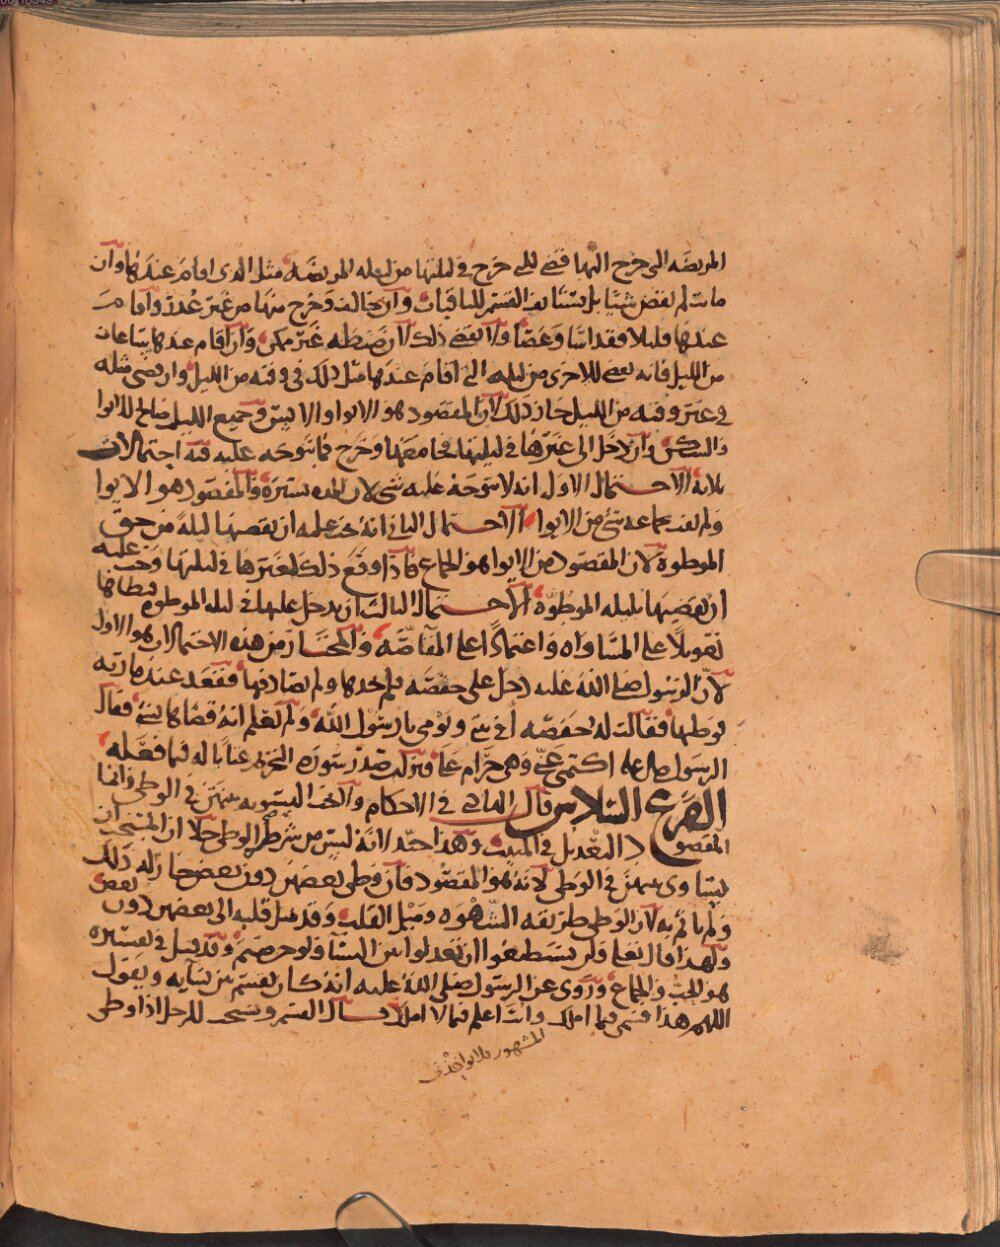 المريضه التي خرج اليها قضى للتي خرج في ليلتها من ليله المريضه مثل الذي اقام عندها وان
ماتت لم يقض شيئا بل يستانف القسم للباقيات وان خالف وخرج منها من غير عذر واقام
عندها قليلا فقد اسا وعصا ولا يقضي ذلك لان ضبطه غير ممكن وان اقام عندها ساعات
من الليل فانه يقضي للاخرى من ليله التي اقام عندها مثل ذلك في وقته من الليل وان قضى مثله
في غير وقته من الليل جاز ذلك لان المقصود هو الايوا والانس وجميع الليل صالح للايوا
والسكن وان دخل الى غيرها في ليلتها فجامعها وخرج فما يتوجه عليه فيه احتمالات
ثلاثه الاحتمال الاول انه لا يتوجه عليه شي لان المده يسيره والمقصود هو الايوا
ولم يفت بجماعه شي من الايوا الاحتمال الثاني انه يجب عليه ان يقضيها ليلة من حق
الموطوة لان المقصود من الايوا هو الجماع فاذا وقع ذلك لغيرها في ليلتها وجب عليه
ان يقضيها بليله الموطوة الاحتمال الثالث ان يدخل عليها في ليله الموطوه فيطاها
تعويلا على المساواه واعتمادا على المقاصه والمختار من هذه الاحتمالات هو الاول
لان الرسول صلى الله عليه دخل على حفصه فلم يجدها ولم يصادفها فقعد عند ماريه
فوطيها فقالت له حفصه أفي بيتي ويومي يا رسول الله ولم يعلم انه قضاها بشي فقال
الرسول صلى الله عليه اكتمي عني وهي حرام علي فنزلت صدر سورة التحريم عتابا له فيما فعله
الفرع السادس قال الهادي في الاحكام ولا تجب التسويه بينهن في الوطي وانما
المقصود التعديل في المبيت وهذا جيد لانه ليس من شرط الوطي خلا ان المستحب ان
يساوي بينهن في الوطي لانه هو المقصود فان وطي بعضهن دون بعض جاز له ذلك
ولم ياثم به لان الوطي طريقه الشهوه وميل القلب وقد يميل قلبه الى بعضهن دون بعض
ولهذا قال تعالى ولن تستطيعوا ان تعدلوا بين النسا ولو حرصتم وقد قيل في تفسيره
هو الحب والجماع وروي عن الرسول صلى الله عليه انه كان يقسم بين نسايه ويقول
اللهم هذا قسمي فيما املك وانت اعلم فيما لا املك قال القسم ويستحب للرجل اذا وطي
المشهور فلا تواخذني